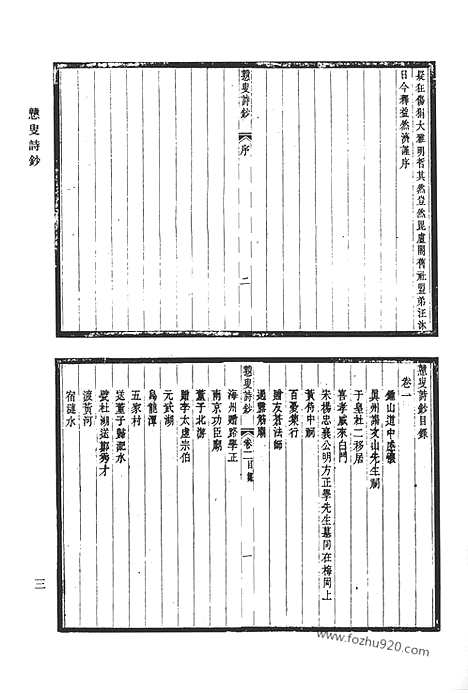 戇叟詩鈔
疑狂傷狷大雅明哲其然豈然毘盧閣舊社盟弟汪沐
日今釋益然濟謹序
戇叟詩鈔 序 二
戇叟詩鈔目錄
卷一
鍾山道中感懷
異州謁文山先生祠
于皇杜二移居
喜孝威來白門
黃侍中祠
朱楊忠襄公明方正學先生墓同在梅岡上
百憂集行
贈友蒼法師
過露筋廟
戇叟詩鈔 卷一目錄 一
海州贈路學正
南京功臣廟
董子北游
贈李太虛宗伯
元武湖
烏龍潭
五家村
送董子歸泥水
登杜湖送鄭秀才
渡黃河
宿漣水
三
www.fozhu920.com